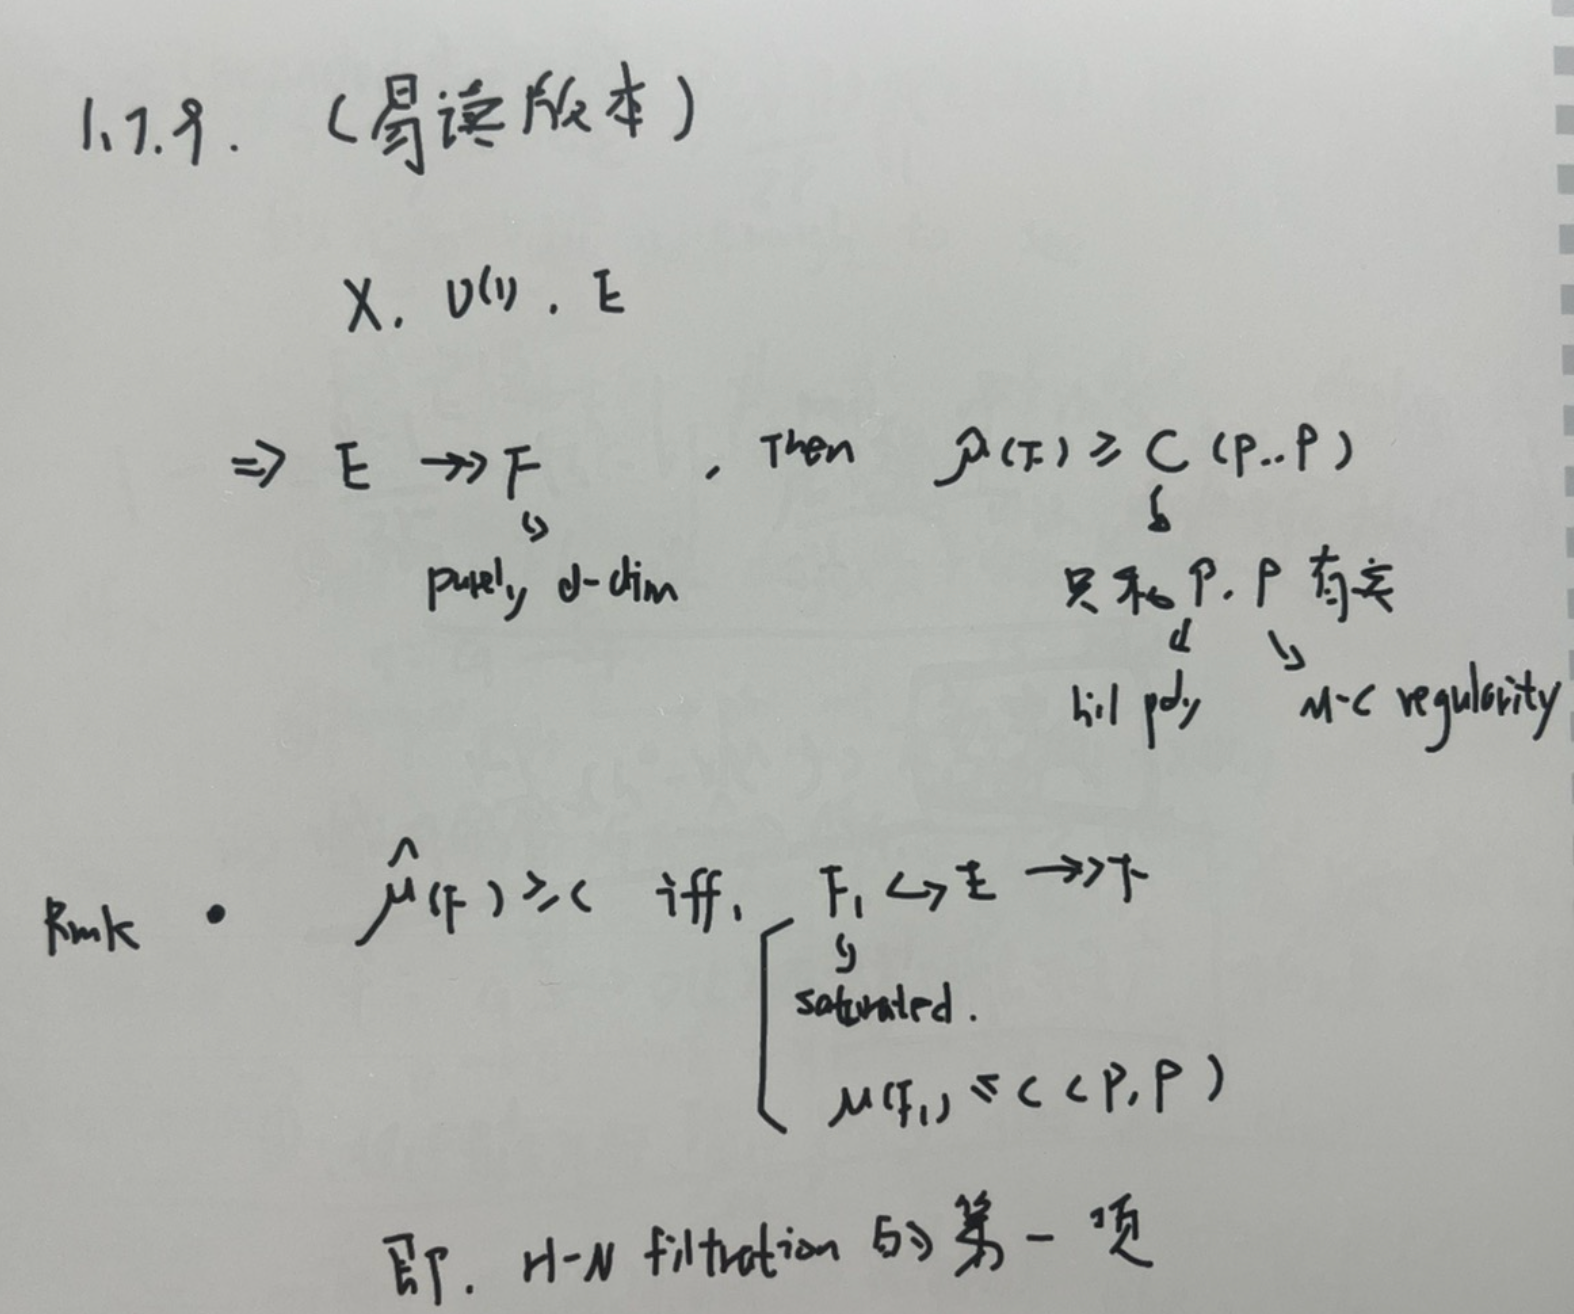 1.7.9. (易读版本)
X. O(1). E
⇒ E ↠ F , Then μ̂(F) ≥ C (P..ρ)
purely d-dim
只和 P. ρ 有关
hil poly M-C regularity
Rmk • μ̂(F) ≥ C iff. F₁ ↪ E ↠ F
saturated.
μ(F₁) ≤ C (P, ρ)
即. H-N filtration 的第一项